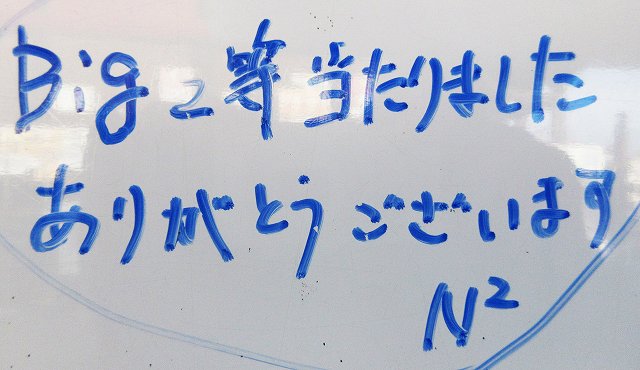 Big 2等当たりました
ありがとうございます
N²